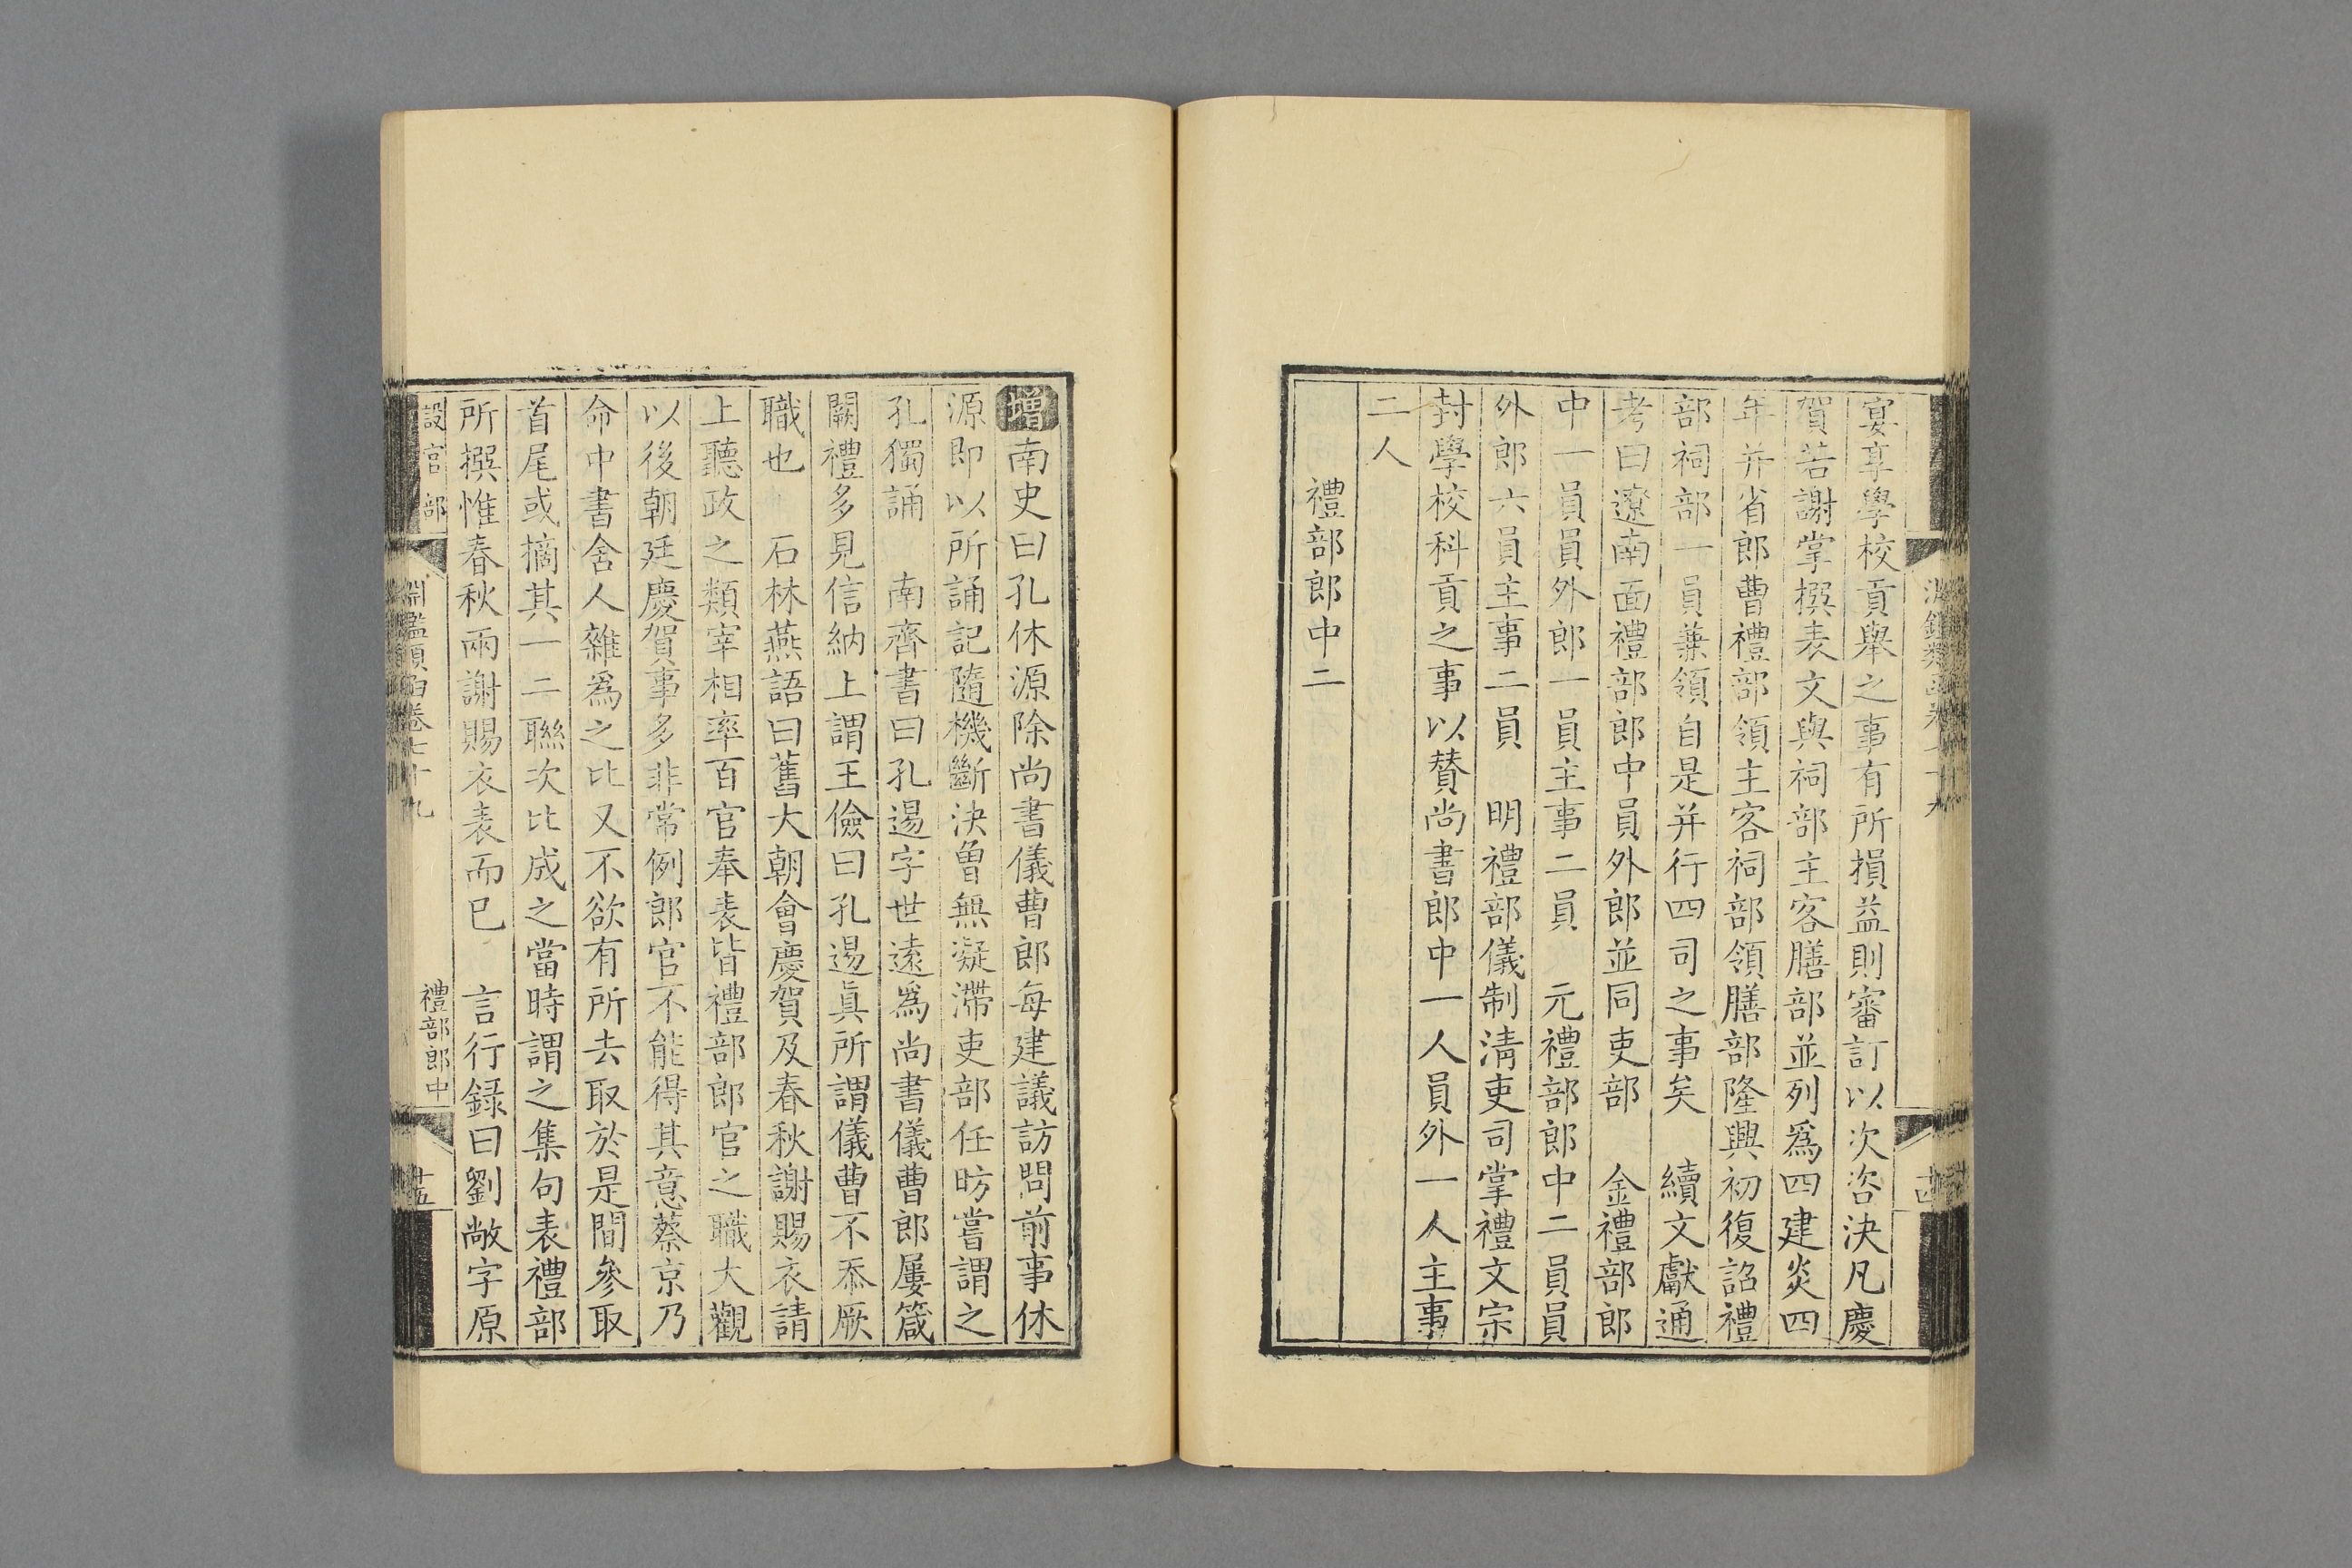 宴享學校貢舉之事有所損益則審訂以次咨決凡慶
賀若謝掌撰表文與祠部主客膳部並列爲四建炎四
年并省郎曹禮部領主客祠部領膳部隆興初復詔禮
部祠部一員兼領自是并行四司之事矣　續文獻通
考曰遼南面禮部郎中員外郎並同吏部　金禮部郎
中一員員外郎一員主事二員　元禮部郎中二員員
外郎六員主事二員　明禮部儀制清吏司掌禮文宗
封學校科貢之事以贊尚書郎中一人員外一人主事
二人
禮部郎中二
增南史曰孔休源除尚書儀曹郎每建議訪問前事休
源即以所誦記隨機斷決曾無凝滯吏部任昉嘗謂之
孔獨誦　南齊書曰孔逷字世遠爲尚書儀曹郎屢箴
闕禮多見信納上謂王儉曰孔逷眞所謂儀曹不忝厥
職也　石林燕語曰舊大朝會慶賀及春秋謝賜衣請
上聽政之類宰相率百官奉表皆禮部郎官之職大觀
以後朝廷慶賀事多非常例郎官不能得其意蔡京乃
命中書舍人雜爲之比又不欲有所去取於是間參取
首尾或摘其一二聯次比成之當時謂之集句表禮部
所撰惟春秋兩謝賜衣表而已　言行録曰劉敞字原
設官部
淵鑑類函卷七十九
禮部郎中
十五